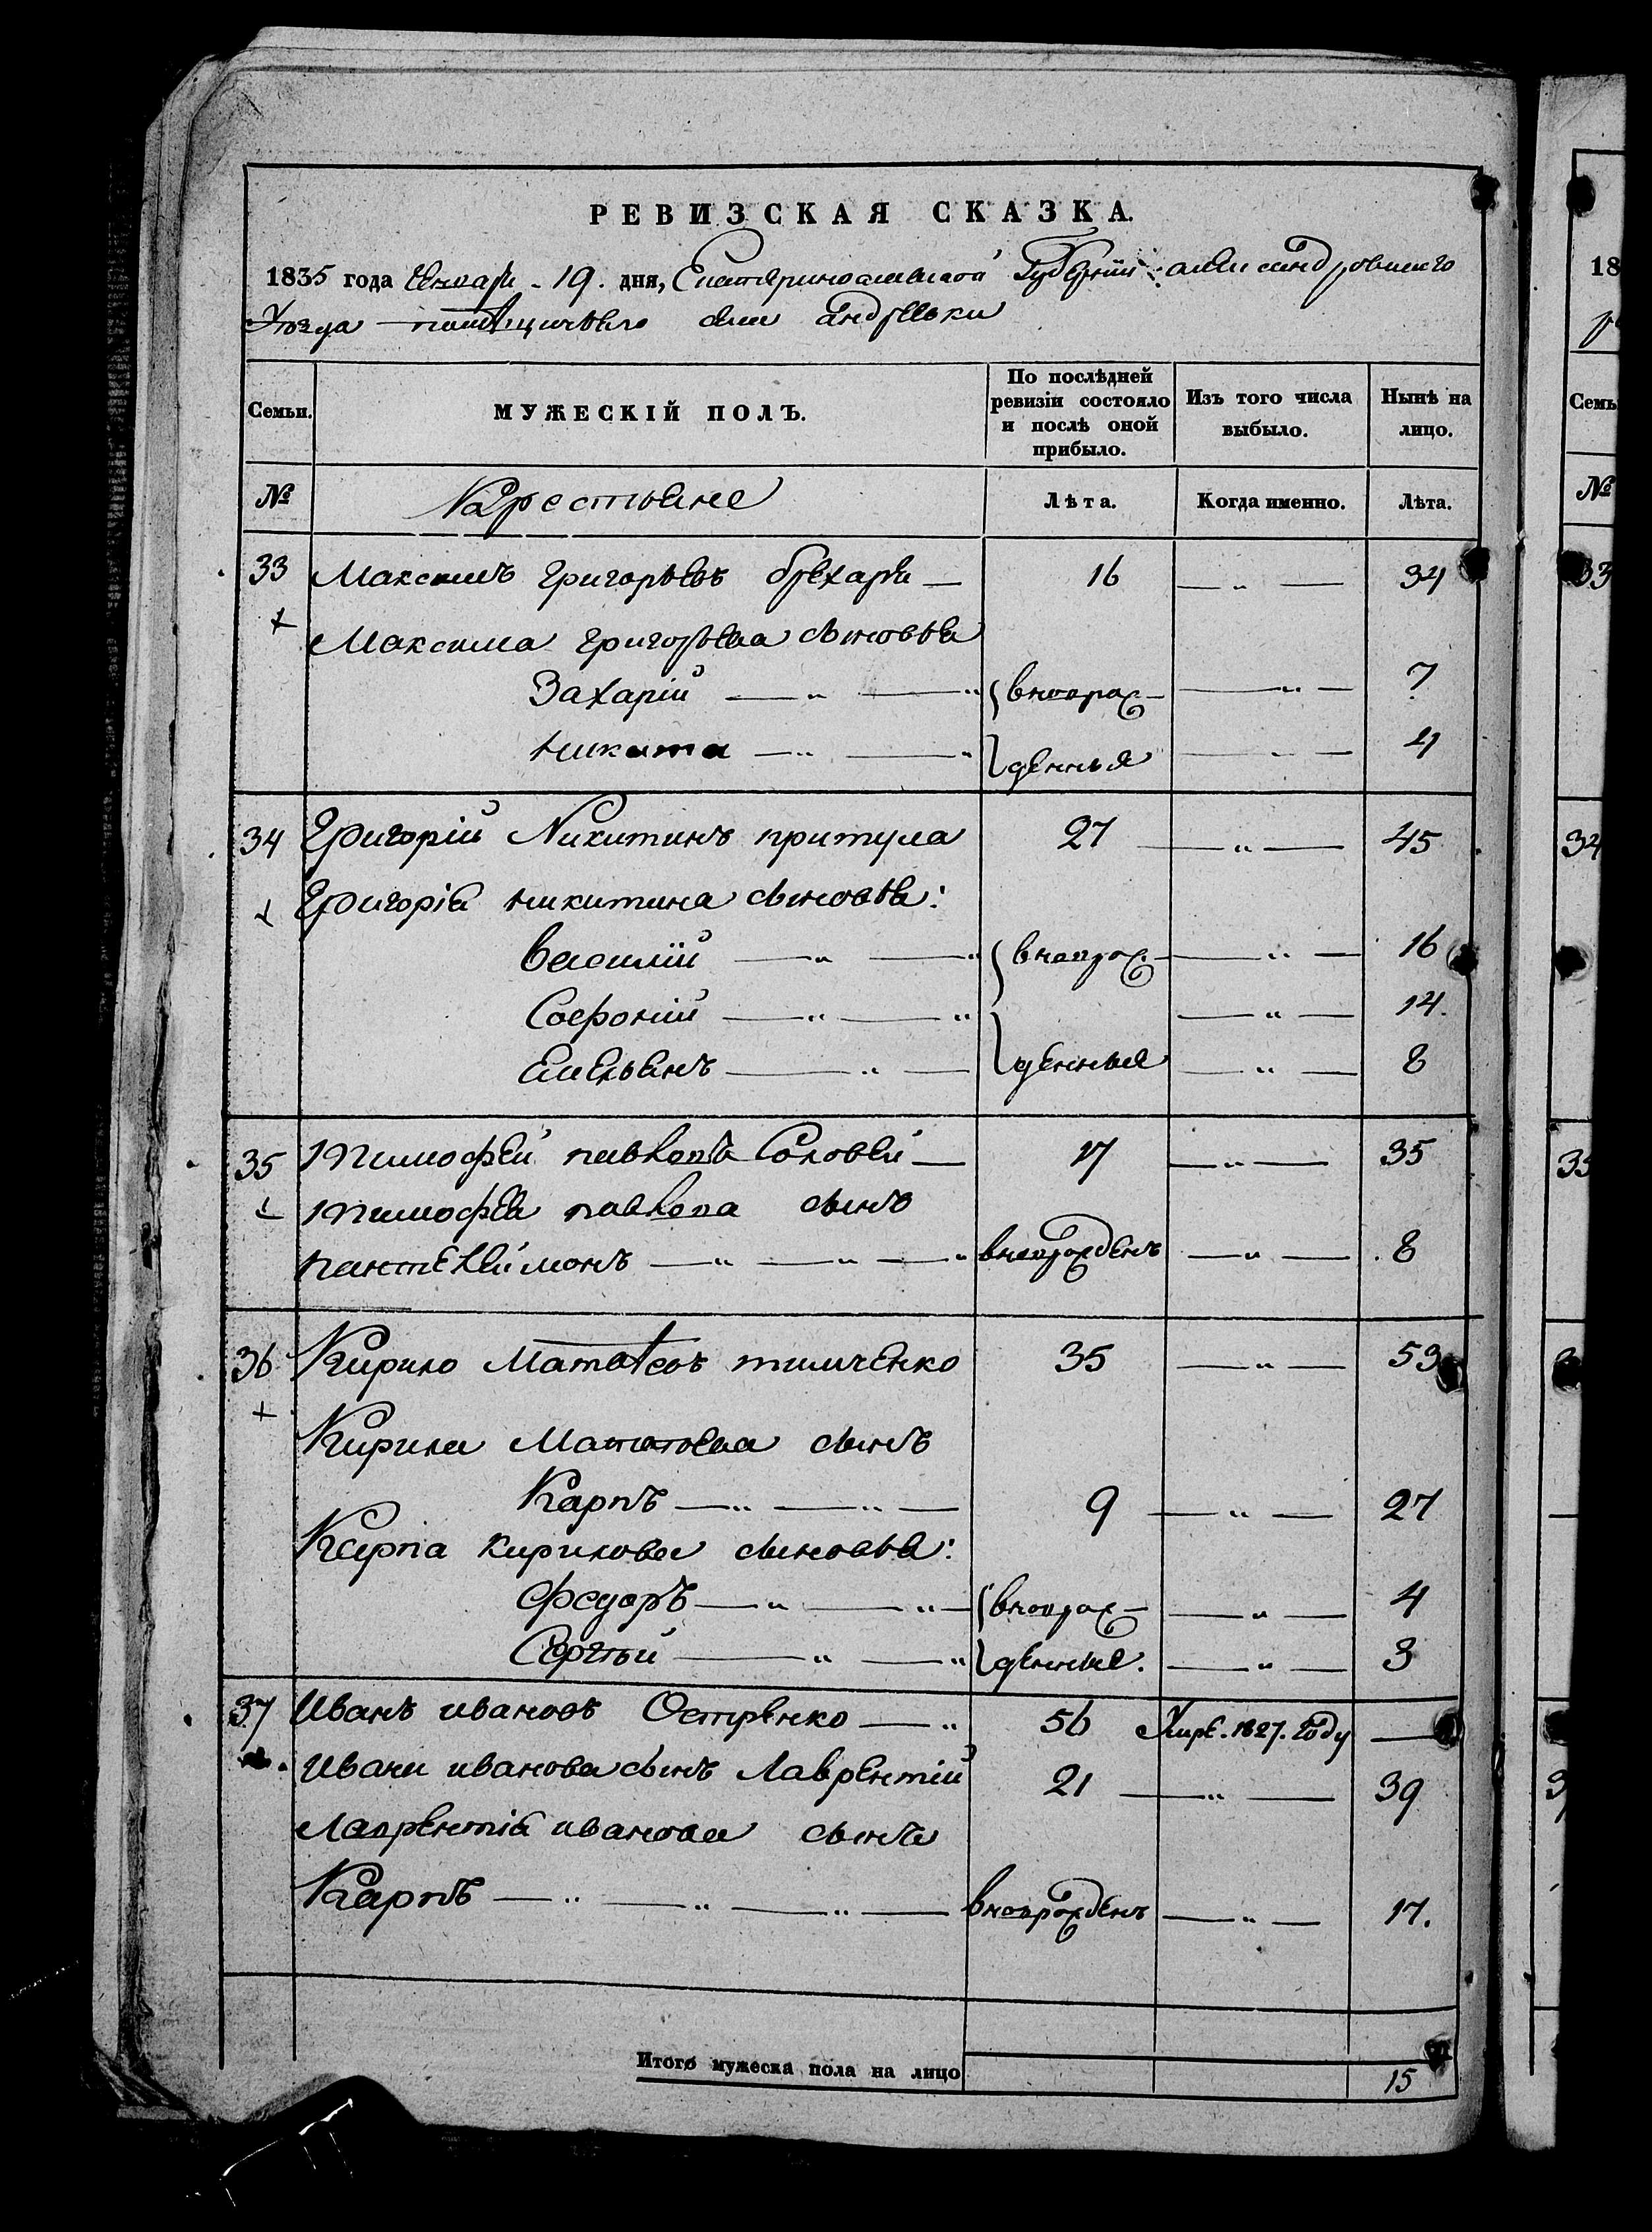 РЕВИЗСКАЯ СКАЗКА.
1835 года Генваря 19. дня, Екатеринославской Губерніи александровского
Уѣзда помѣщичьего села андреевки
Семьи. МУЖЕСКІЙ ПОЛЪ. По послѣдней ревизіи состояло и послѣ оной прибыло. Изъ того числа выбыло. Нынѣ на лицо.
№ Крестьяне Лѣта. Когда именно. Лѣта.
33 Максимъ григорьевъ брехаря — 16 — „ — 34
Максима григорьева сыновья
Захарій — „ — „ вновьрож- — „ — 7
никита — „ — „ денныя — „ — 4
34 Григорій Никитинъ притула 27 — „ — 45
Григорія никитина сыновья:
василій — „ — „ вновьрож- — „ — 16
Софроній — „ — „ — „ — 14.
Емельянъ — „ — денныя — „ — 8
35 тимофей павловъ Соловей — 17 — „ — 35
тимофея павлова сынъ
пантелеймонъ — „ — „ — „ вновьрожденъ — „ — 8
36 Кирило Матвѣевъ тимченко 35 — „ — 53
Кирила Матвѣева сынъ
Карпъ — „ — „ — 9 — „ — 27
Карпа кирилова сыновья:
федоръ — „ — „ — вновьрож- — „ — 4
Сергѣй — „ — „ денныя. — „ — 3
37 Иванъ ивановъ Остренко — „ 56 Умре. 1827. году —
Ивана иванова сынъ Лаврентій 21 — „ — 39
Лаврентія иванова сынъ
Карпъ — „ — „ — „ — вновьрожденъ — „ — 17.
Итого мужеска пола на лицо 15
18
Семь
№
33
34
35